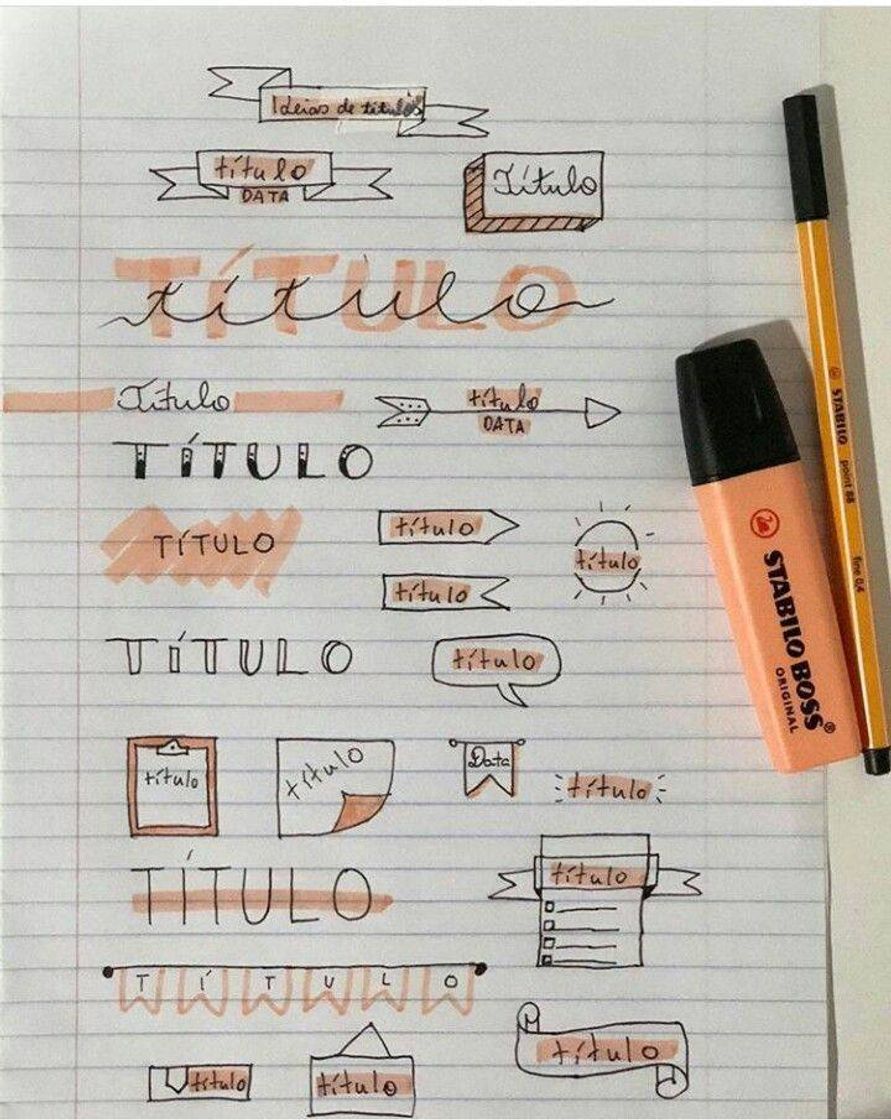 Ideias de títulos
título
DATA
Título
TÍTULO
título
Título
título
DATA
TÍTULO
TÍTULO
título
título
título
TÍTULO
título
título
título
Data
título
TÍTULO
título
TÍTULO
título
título
título
STABILO BOSS®
ORIGINAL
STABILO point 88 fine 0,4